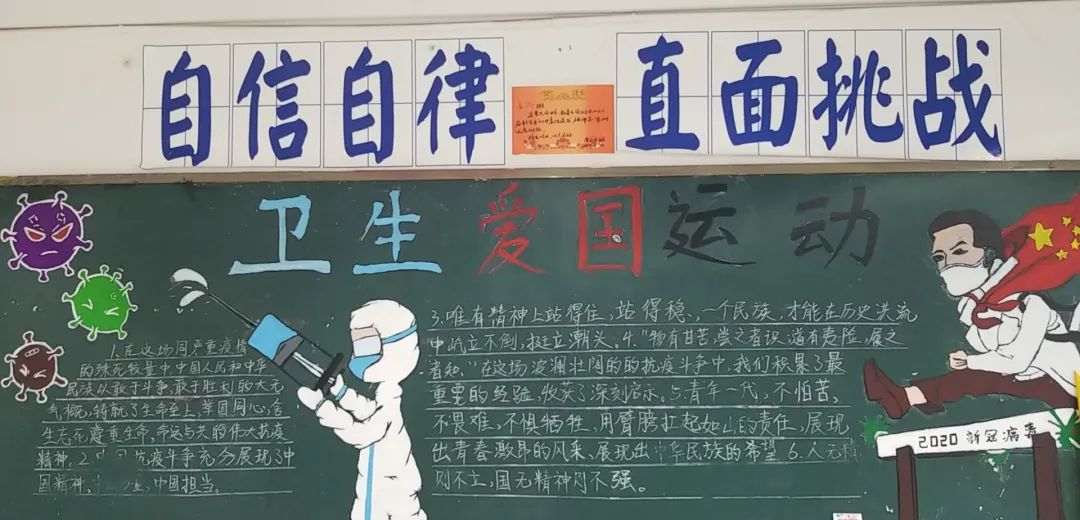 自信自律 直面挑战
卫生爱国运动
1.在这场同严重疫情
的殊死较量中中国人民和中华
民族以敢于斗争,敢于胜利的大无
气概,铸就了生命至上,举国同心,舍
生忘死,尊重生命,命运与共的伟大抗疫
精神.2.中国抗疫斗争充分展现了中
国精神,中国担当。
3.唯有精神上站得住,站得稳、一个民族,才能在历史洪流
中屹立不倒,挺立潮头。4.“物有甘苦,尝之者识,道有夷险,履之
者知,”在这场波澜壮阔的的抗疫斗争中,我们积累了最
重要的经验,收获了深刻启示。5.青年一代,不怕苦、
不畏难,不惧牺牲,用臂膀扛起如山的责任,展现
出青春激昂的风采,展现出中华民族的希望6.人无精
则不立,国无精神则不强。
2020新冠病毒